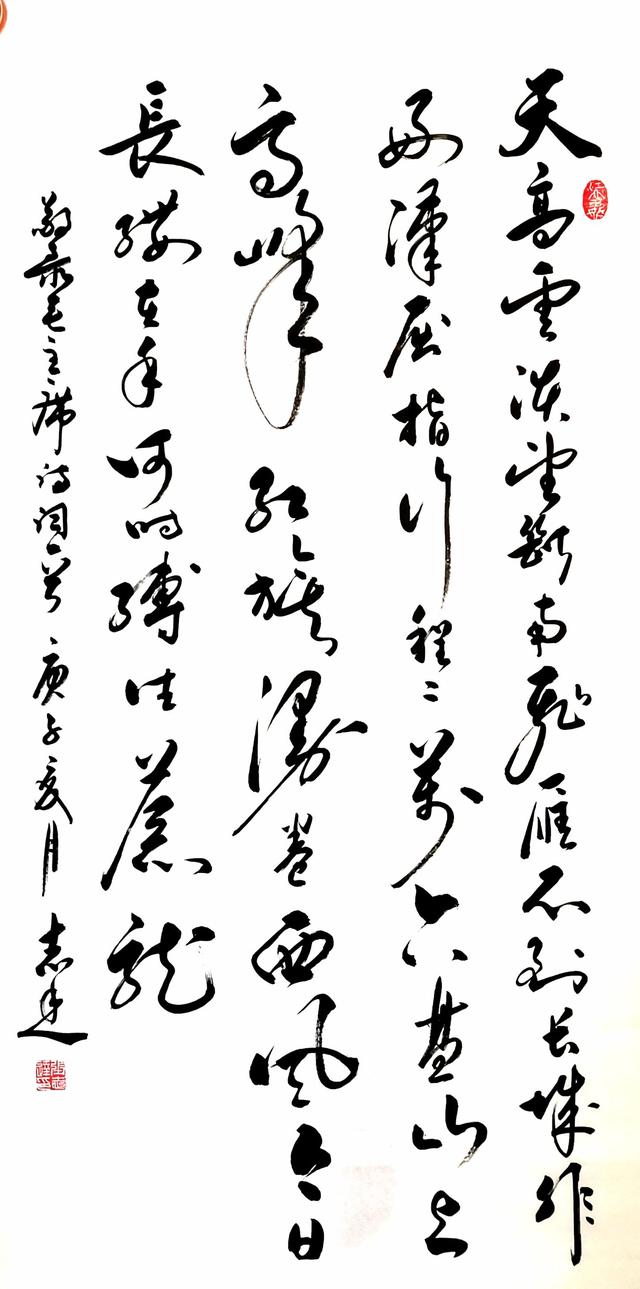 天高雲淡望斷南飛雁不到长城非
好漢屈指行程二萬六盘山上
高峰红旗漫卷西风今日
長缨在手何时縛住蒼龍
敬录毛主席诗词一首 庚子夏月 志